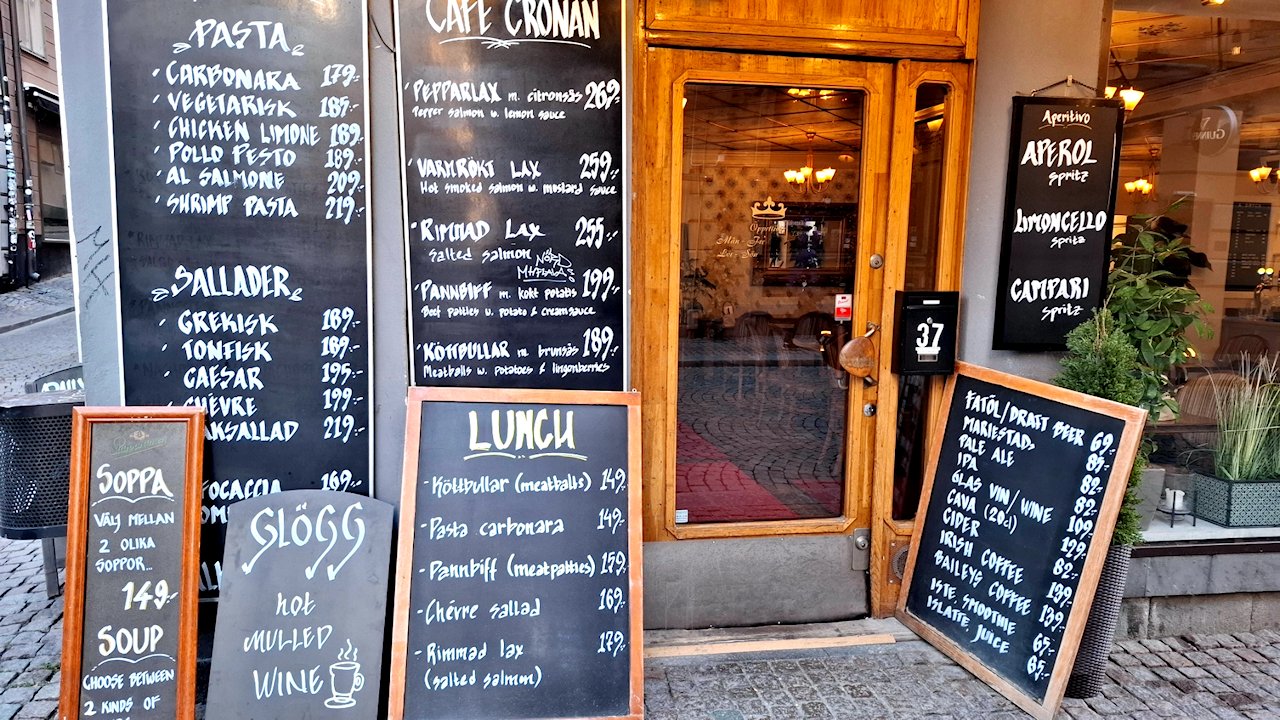 PASTA
CARBONARA 179:-
VEGETARISK 185:-
CHICKEN LIMONE 189:-
POLLO PESTO 189:-
AL SALMONE 209:-
SHRIMP PASTA 219:-
SALLADER
GREKISK 189:-
TONFISK 189:-
CAESAR 195:-
CHÉVRE 199:-
AKSALLAD 219:-
FOCACCIA 169:-
CAFE CRONAN
PEPPARLAX m. citronsås 269:-
Pepper salmon w. lemon sauce
VARMRÖKT LAX 259:-
Hot smoked salmon w. mustard sauce
RIMMAD LAX 255:-
Salted salmon
PANNBIFF m. kokt potatis 199:-
Beef patties w. potato & creamsauce
KÖTTBULLAR m. brunsås 189:-
Meatballs w. potatoes & lingonberries
SOPPA
VÄLJ MELLAN
2 OLIKA
SOPPOR...
149:-
SOUP
CHOOSE BETWEEN
2 KINDS OF
GLÖGG
hot
MULLED
WINE
LUNCH
- Köttbullar (meatballs) 149:-
- Pasta carbonara 149:-
- Pannbiff (meatpatties) 159:-
- Chévre sallad 169:-
- Rimmad lax 179:-
(salted salmon)
37
Aperitivo
APEROL
Spritz
LIMONCELLO
Spritz
CAMPARI
Spritz
FATÖL/DRAFT BEER 69:-
MARIESTADS 85:-
PALE ALE 82:-
IPA 82:-
GLAS VIN/WINE 109:-
CAVA (20cl) 129:-
CIDER 82:-
IRISH COFFEE 139:-
BAILEYS COFFEE 139:-
ISTE SMOOTHIE 65:-
ISLATTE JUICE 65:-